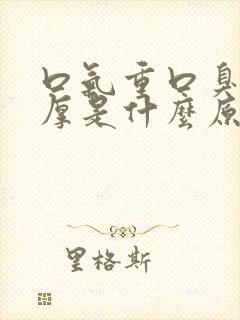 口氣重口臭
厚是什麼原
里格斯